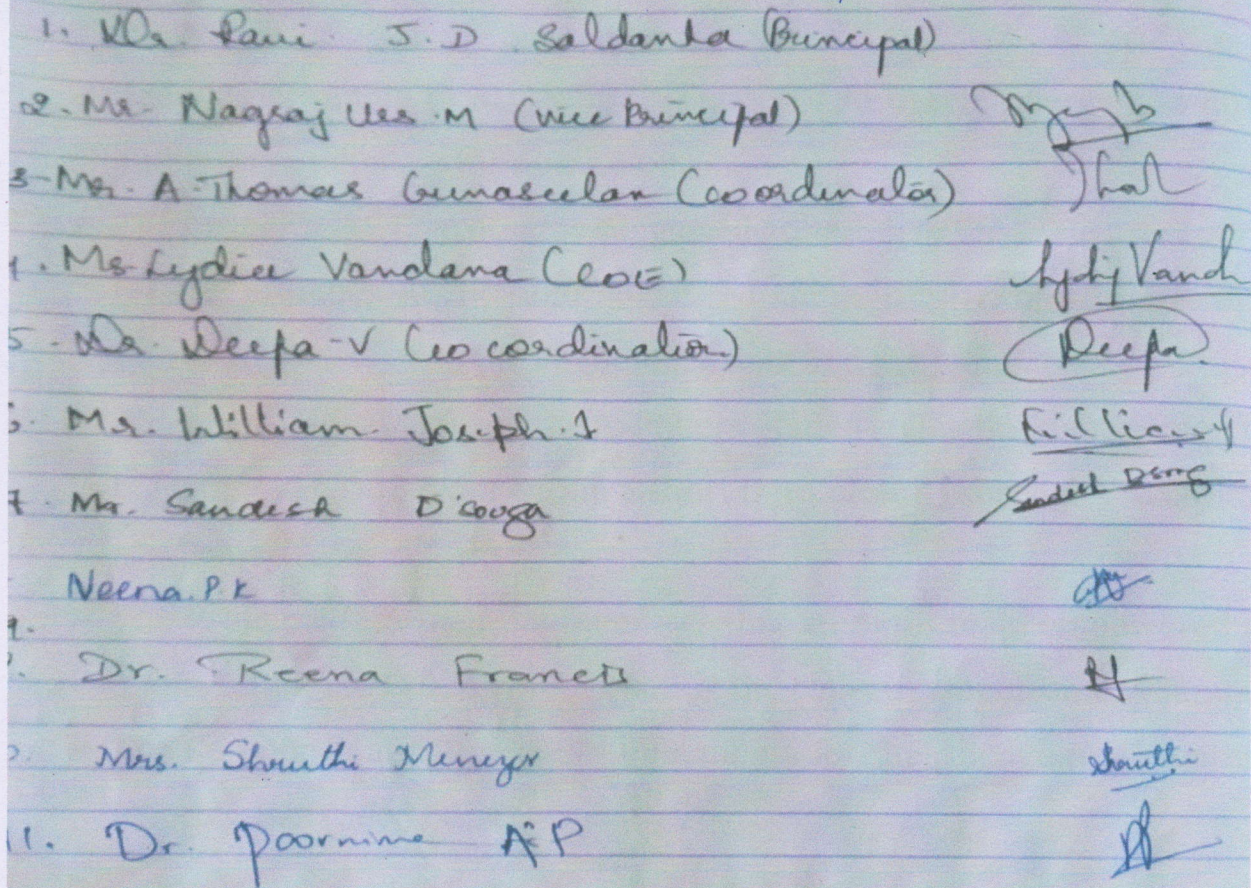 1. Dr. Ravi J.D Saldanha (Principal)
2. Mr. Nagraj Urs .M (vice Principal)
3- Mr. A. Thomas Gunaseelan (coordinator)
4. Ms. Lydia Vandana (COE) Vand
5. Dr. Deepa-V (co cordination.) Deepa.
Mr. William Joseph. J
7. Mr. Sandesh D'souza Sandesh
Neena. P.K
9.
Dr. Reena Francis
Mrs. Shruthi Menezes Shruthi
11. Dr. Poornima A P